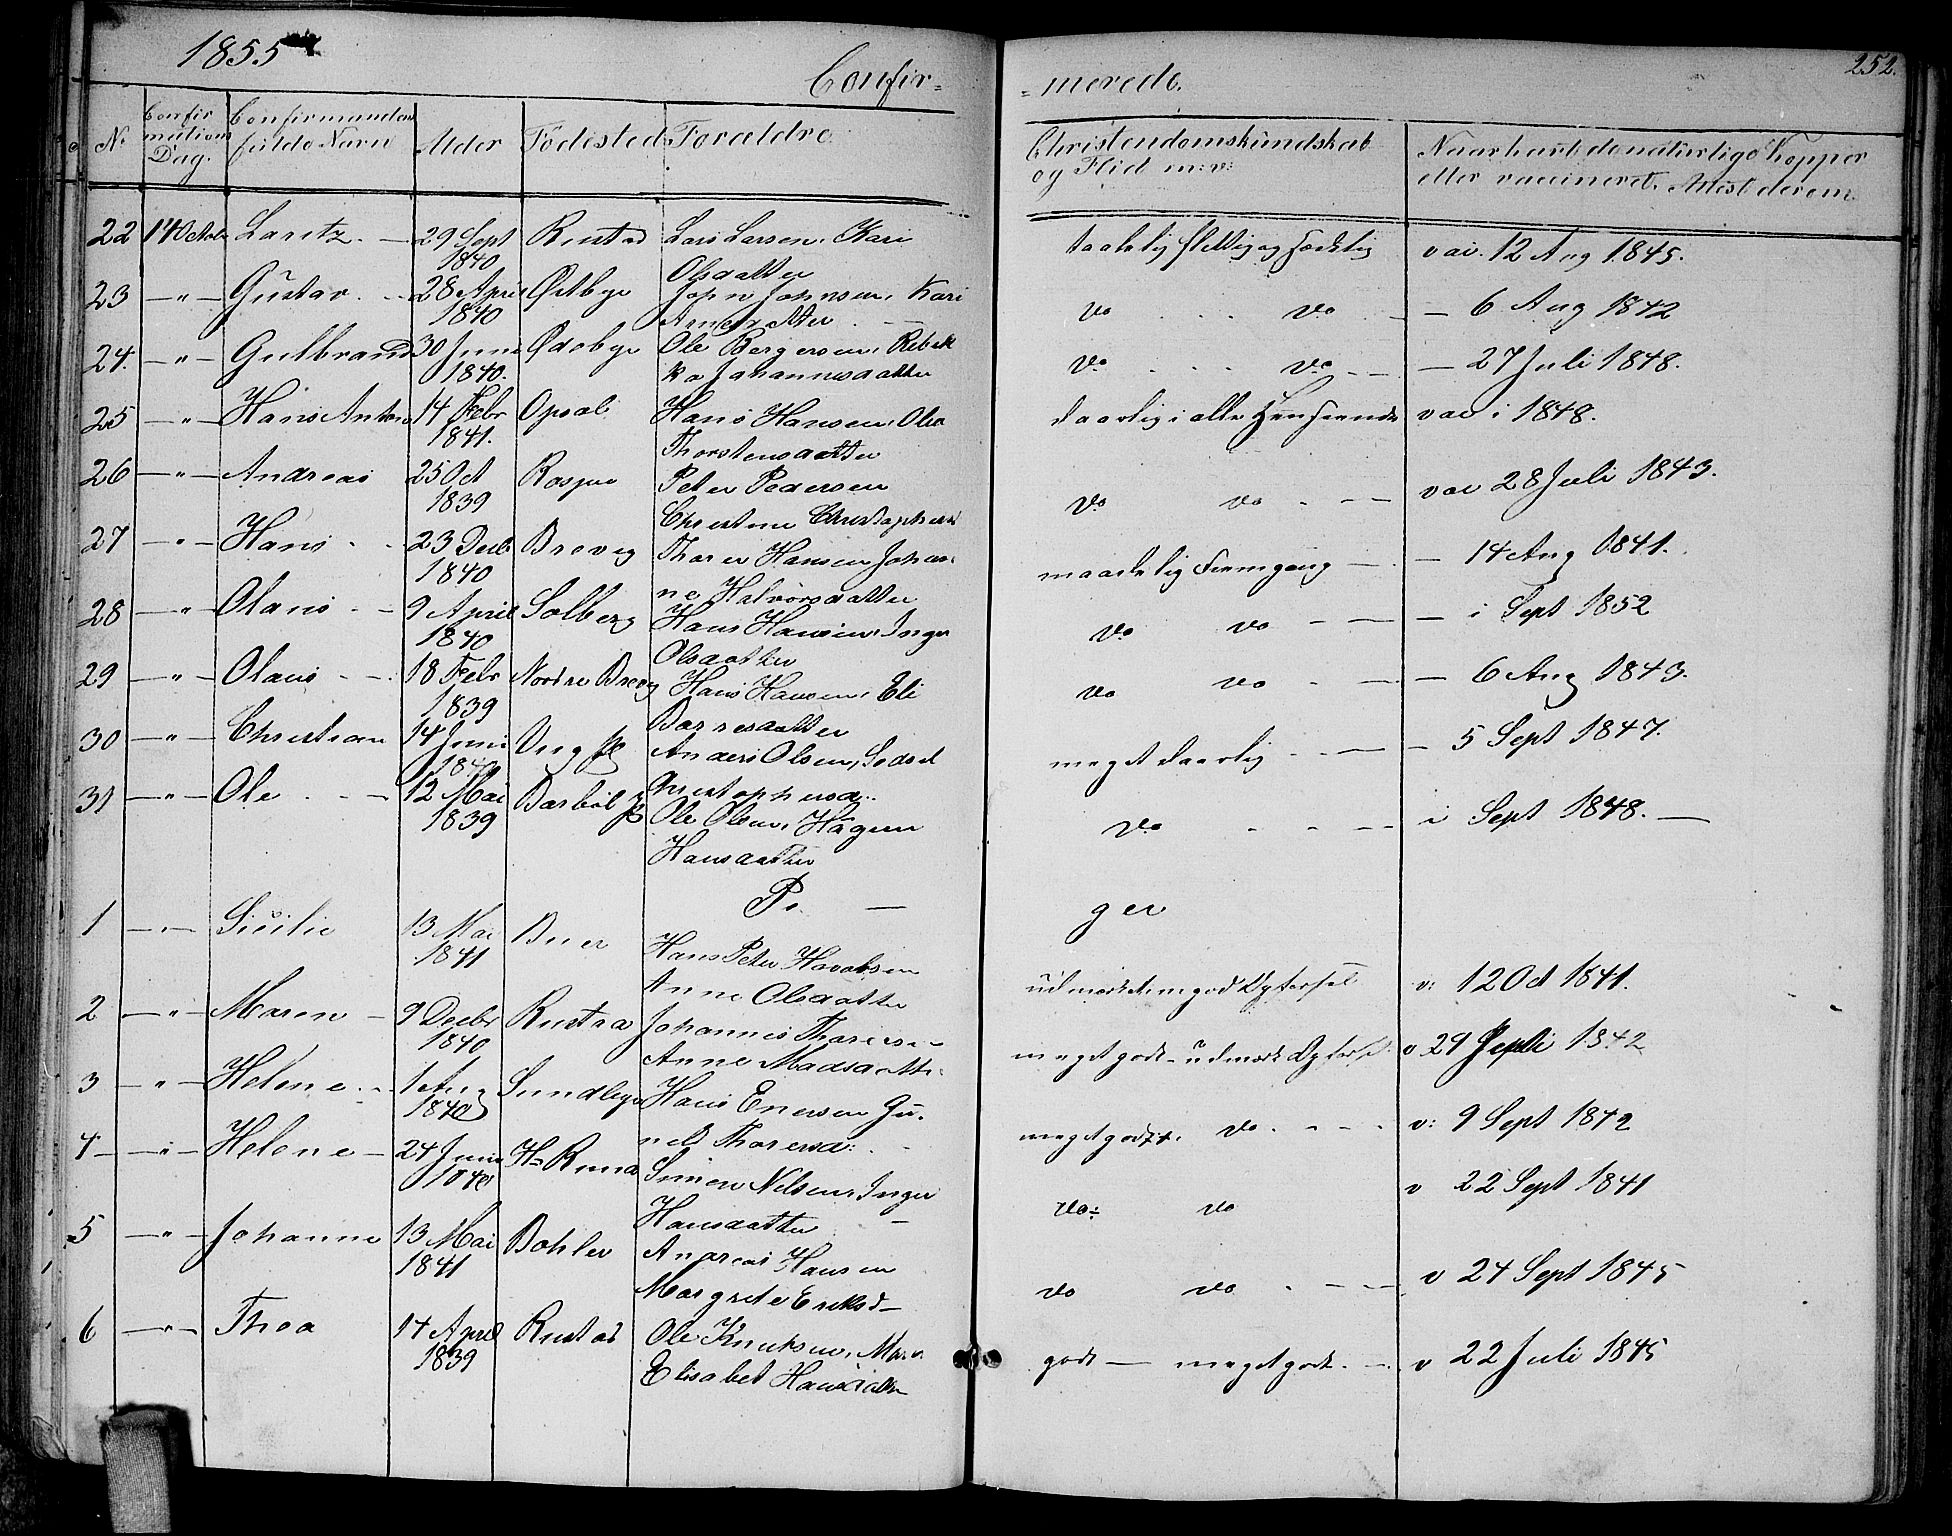 1855
252.
Confir=
=merede.
No
Confirmations Dag.
Confirmandens fulde Navn
Alder
Fødested
Forældre
Christendomskundskab og Flid m: v:
Naar havt de naturlige Kopper eller vaccineret. Attest derom
22 14 Octobr Laritz. 29 Sept 1840 Rustad Lars Larsen, Kari Olsdatter taalelig flittig og sædelig vac. 12 Aug 1845.
23 — " — Gustav. 28 April 1840 Østbye John Johnsen, Kari Arnesdatter do do — 6 Aug 1842
24. — " — Gulbrand 30 Juni 1840. Ødebye Ole Bergersen, Rebekka Johannesdatter do do — 27 Juli 1848.
25 — " — Hans Anton 14 Febr 1841. Opsal Hans Hansen, Olea Thorstensdatter daarlig i alle Henseende vac i 1848.
26 — " — Andreas 25 Oct 1839 Peter Pedersen Christine do do vac 28 Juli 1843.
27 — " — Hans 23 Decbr 1840 Brevig Thorer Hansen Johanne Halvorsdatter maadelig Fremgang — 14 Aug 1841.
28 — " — Olaus 9 April 1840 Solberg Hans Hansen, Inger Olsdatter do do — i Sept 1852
29 — " — Olaus 18 Febr 1839 Nordre Brevig Hans Hansen, Eli do do — 6 Aug 1843.
30 — " — Christian 14 Juni 1840 Anders Olsen, meget daarlig — 5 Sept 1847.
31 — " — Ole 12 Mai 1839 Ole Olsen, Hansdatter do i Sept 1848. —
Pi. — ger
1 — " — Sicilie 13 Mai 1841 Buer Hans Peter Anne Olsdatter v: 12 Oct 1841.
2 — " — Maren — 9 Decbr 1840 Rustad Johannes Anne Madsdatter meget godt — v 29 1842
3 — " — Helene 1 Aug 1840 Sundbye Hans Enersen Gunild Thorersd: meget godt do v: 9 Sept 1842
4 — " — Helene — 24 Juni 1840 Simen Nilsen, Inger Hansdatter do: do v 22 Sept 1841
5 — " — Johanne 13 Mai 1841 Bøhler Andreas Hansen Margrete Eriksd — do do v 24 Sept 1845
6 — " — Thea 14 April 1839 Rustad Ole Knutsen, Elisabet Hansdatter godt — meget godt. — v 22 Juli 1845